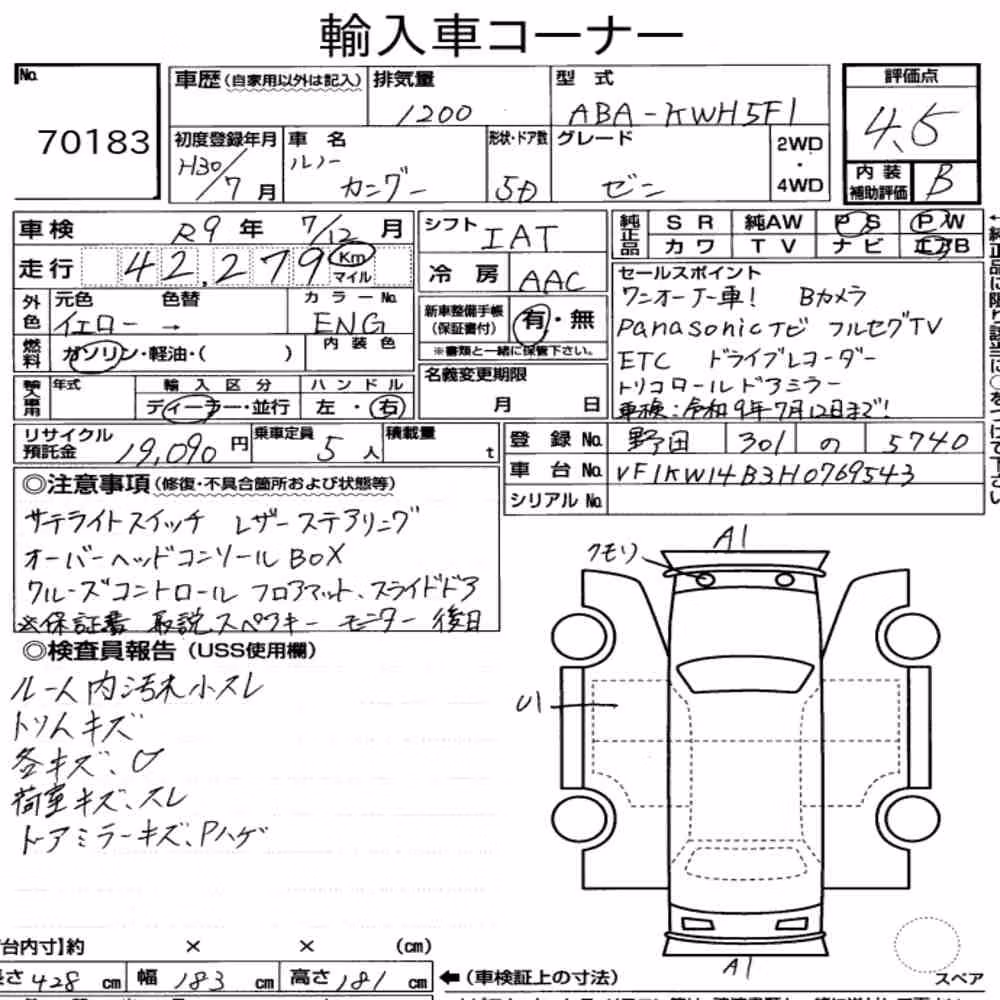 輸入車コーナー
No.
70183
車歴(自家用以外は記入)
排気量
1200
型式
ABA-KWH5F1
評価点
4.5
初度登録年月
H30/7月
車名
ルノー
カングー
形状・ドア数
5D
グレード
ゼン
2WD
・
4WD
内装
補助評価
B
車検 R9年 7/12月
走行 42,279 Km マイル
外色
元色 色替
イエロー →
カラーNo.
ENG
燃料
ガソリン・軽油・( )
内装色
輸入車用
年式
輸入区分
ディーラー・並行
ハンドル
左・右
シフト
IAT
冷房
AAC
新車整備手帳
(保証書付)
有・無
※書類と一緒に保管下さい。
名義変更期限
月 日
純正品
SR 純AW PS PW
カワ TV ナビ エアB
セールスポイント
ワンオーナー車! Bカメラ
Panasonicナビ フルセグTV
ETC ドライブレコーダー
トリコロールドアミラー
車検:令和9年7月12日まで!
リサイクル
預託金
19,090円
乗車定員
5人
積載量
t
登録No. 野田 301 の 5740
車台No. VF1KW14B3H0769543
シリアルNo.
◎注意事項(修復・不具合箇所および状態等)
サテライトスイッチ レザーステアリング
オーバーヘッドコンソールBOX
クルーズコントロール フロアマット、スライドドア
※保証書 取説 スペアキー モニター 後日
◎検査員報告(USS使用欄)
ルーム内汚れ小スレ
トリムキズ
各キズ、U
荷室キズ、スレ
ドアミラーキズ、Pハゲ
クモリ
A1
U1
A1
スペア
台内寸】約 × × (cm)
長さ 428 cm 幅 183 cm 高さ 181 cm
←(車検証上の寸法)